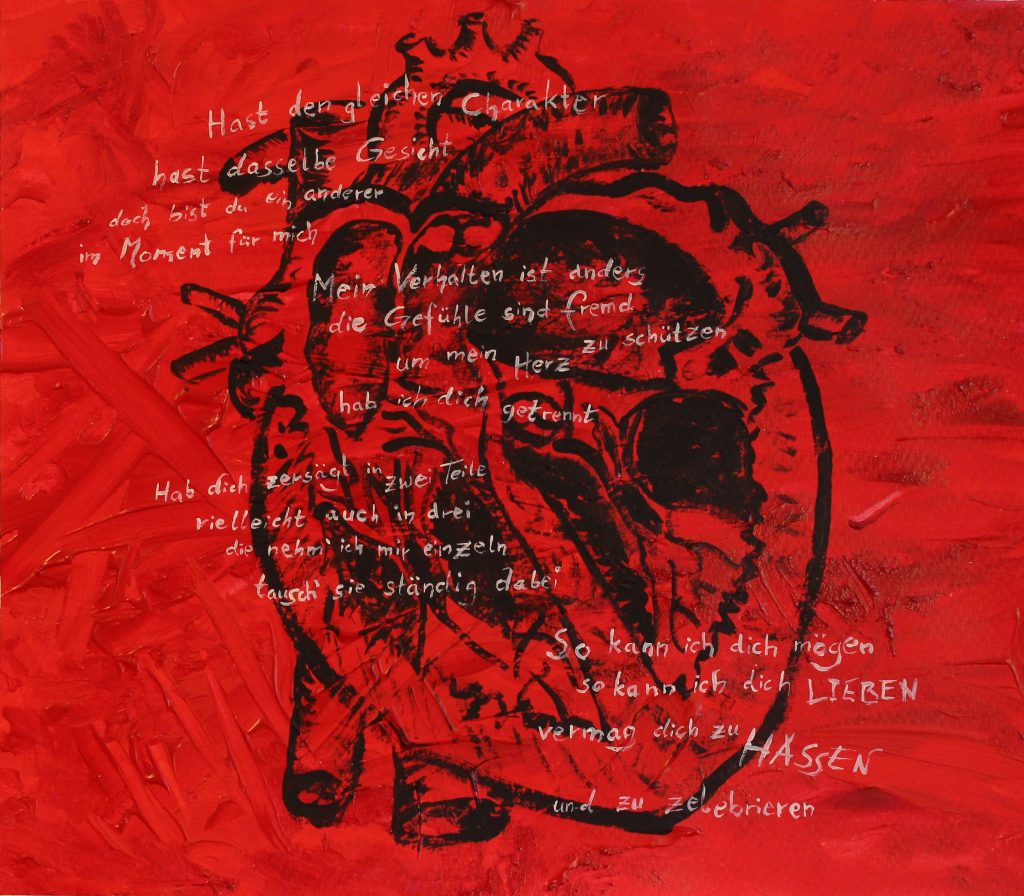 Hast den gleichen Charakter
hast dasselbe Gesicht
doch bist du ein anderer
im Moment für mich
Mein Verhalten ist anders
die Gefühle sind fremd
um mein Herz zu schützen
hab ich dich getrennt
Hab dich zersägt in zwei Teile
vielleicht auch in drei
die nehm' ich mir einzeln
tausch' sie ständig dabei
So kann ich dich mögen
so kann ich dich LIEBEN
vermag dich zu HASSEN
und zu zelebrieren